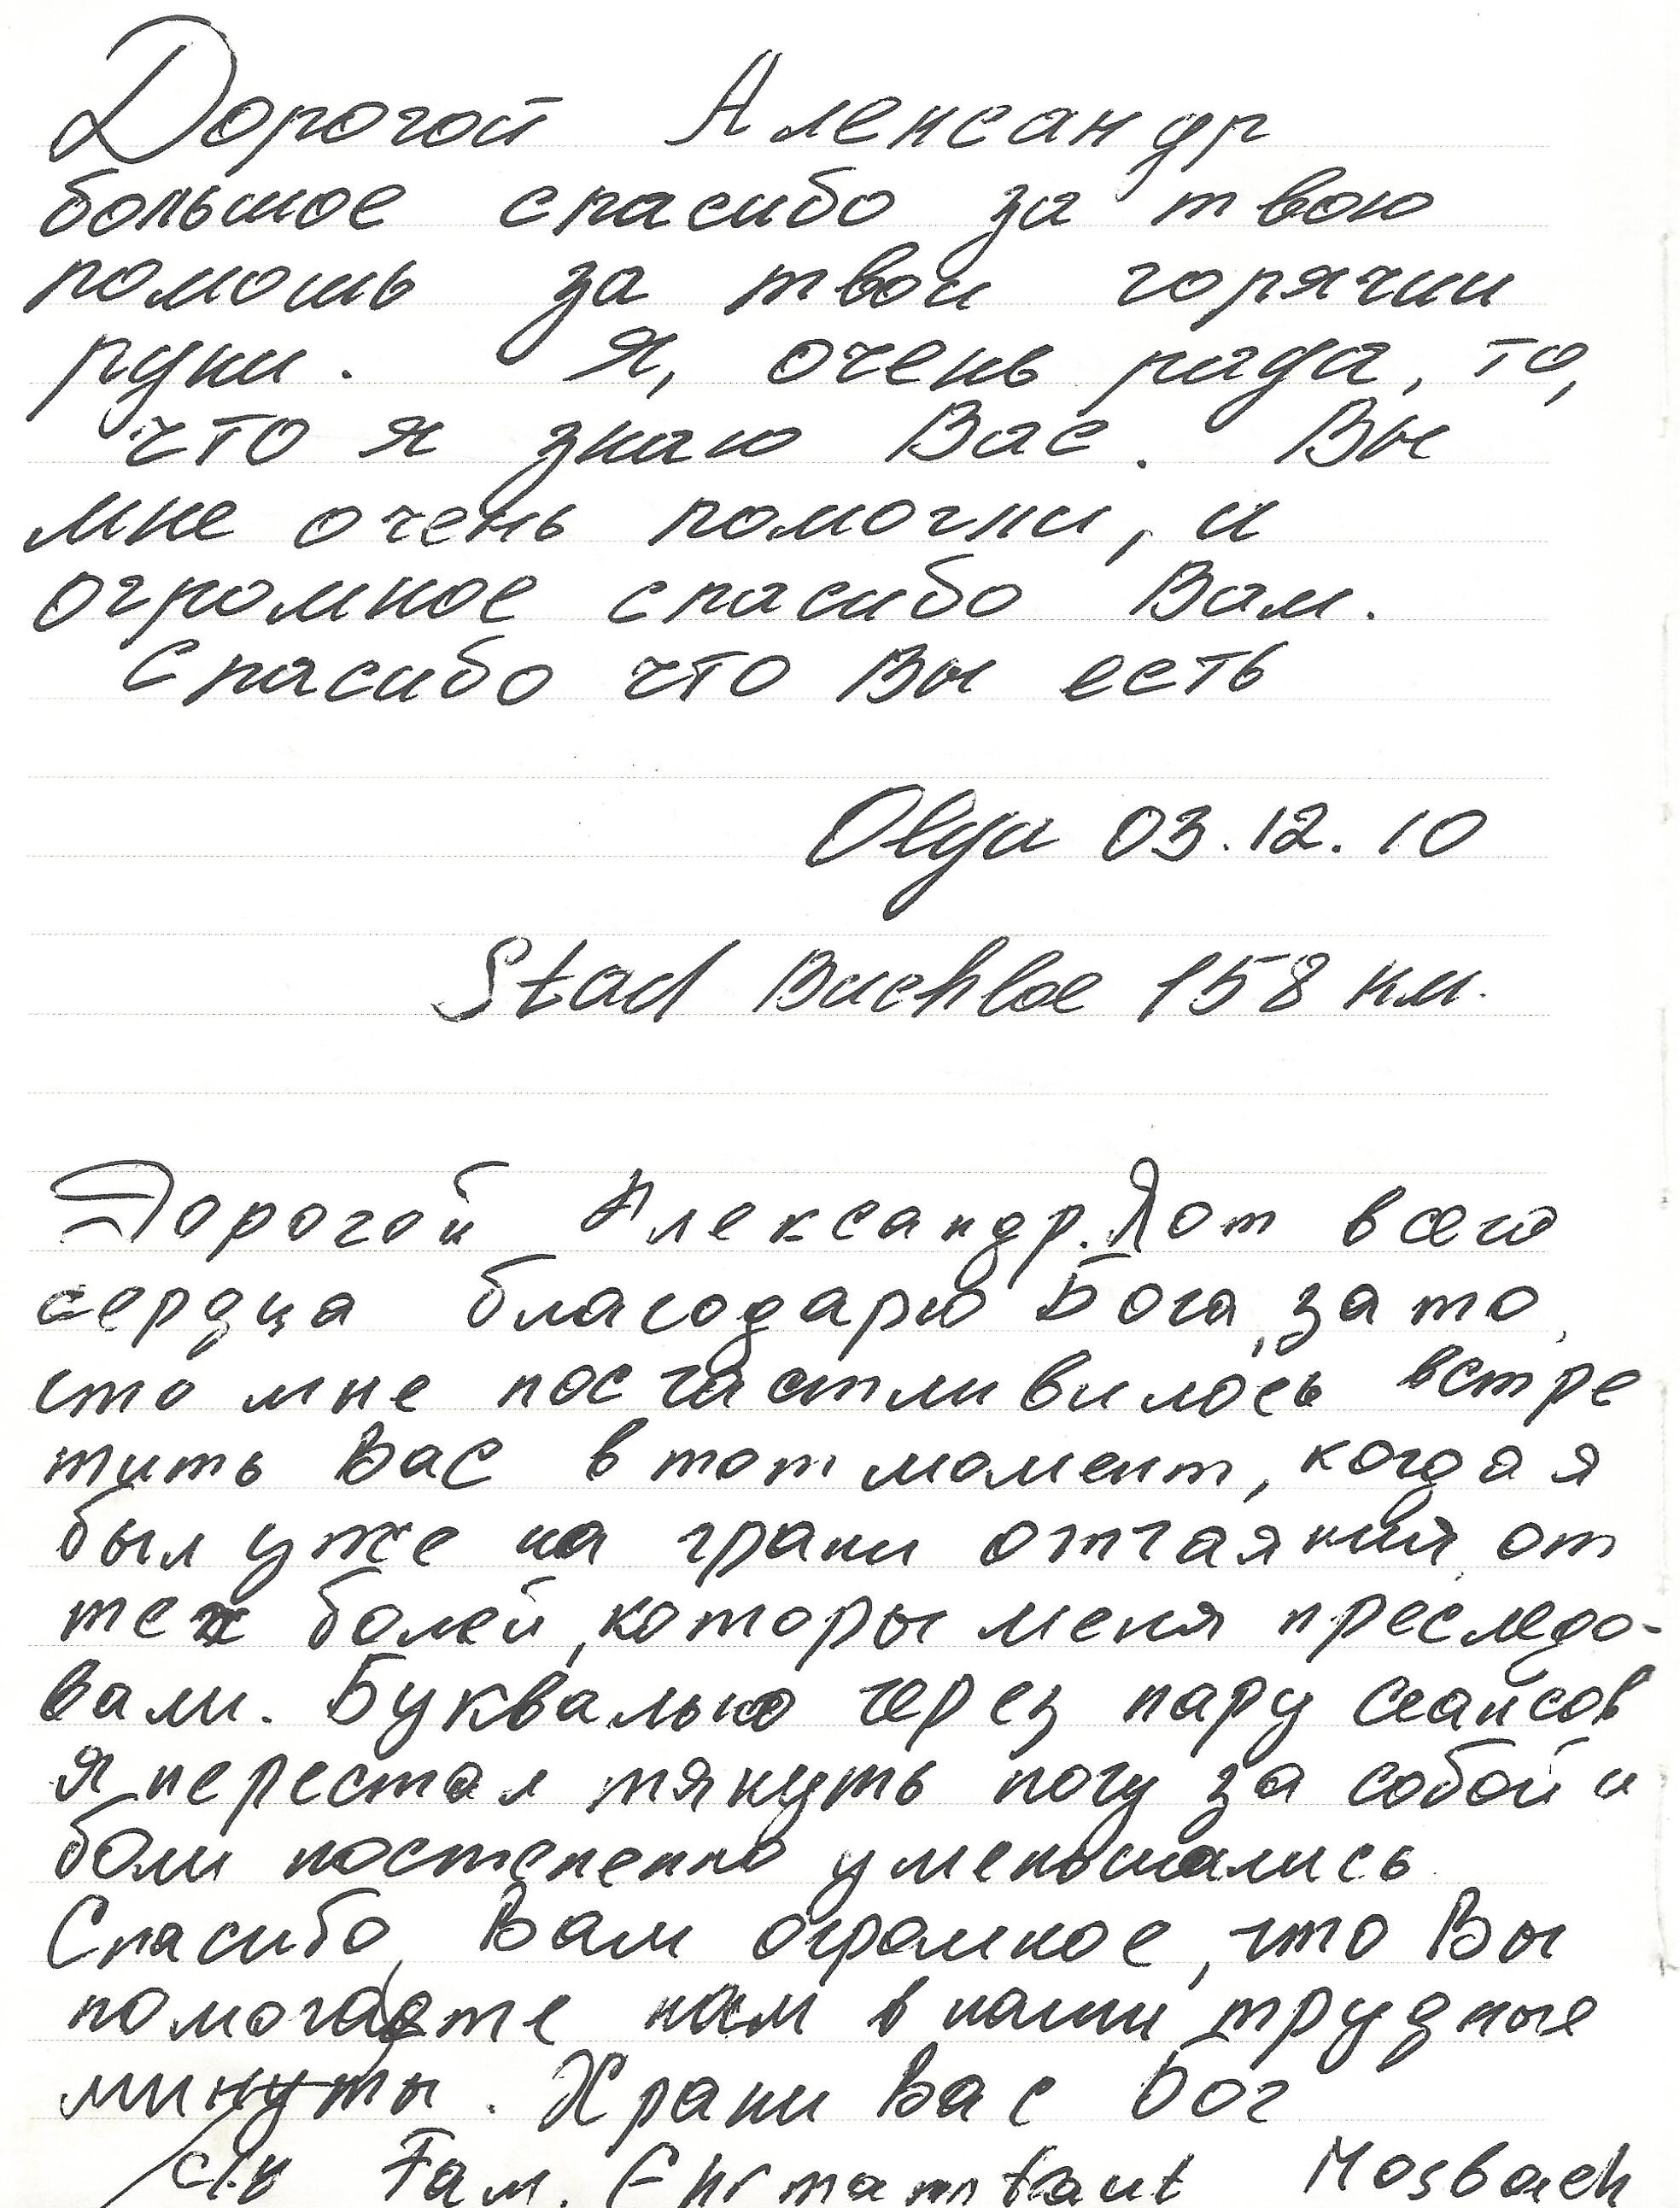 Дорогой Александр
большое спасибо за твою
помошь за твои горячии
руки. Я, очень рада, то,
что я знаю Вас. Вы
мне очень помогли, и
огромное спасибо Вам.
Спасибо что Вы есть
Olga 03.12.10
Stad Buchloe 158 км.
Дорогой Александр. Я от всего
сердца благодарю Бога, за то,
что мне посчастливилось встре
тить Вас в тот момент, когда я
был уже на грани отчаяния, от
тех болей, которы меня преследо-
вали. Буквально через пару сеансов
я перестал тянуть ногу за собой и
боли постепенно уменьшались
Спасибо, Вам огромное, что Вы
помогаете нам в наши трудные
минуты. Храни Вас Бог
Fam. Mosbach